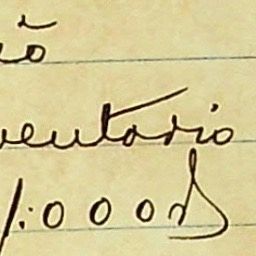 ão
ventario
1:000$